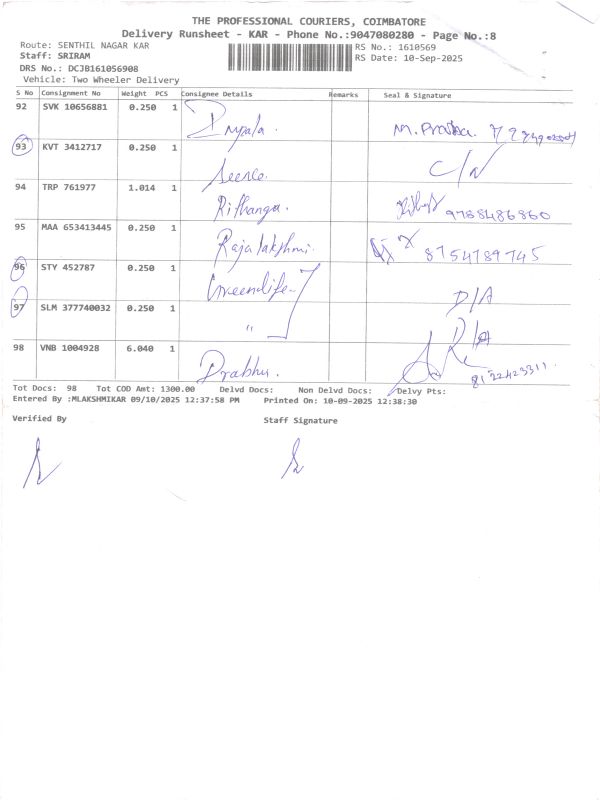 THE PROFESSIONAL COURIERS, COIMBATORE
Delivery Runsheet - KAR - Phone No.:9047080280 - Page No.:8
Route: SENTHIL NAGAR KAR
RS No.: 1610569
Staff: SRIRAM
RS Date: 10-Sep-2025
DRS No.: DCJB161056908
Vehicle: Two Wheeler Delivery
S No Consignment No Weight PCS Consignee Details Remarks Seal & Signature
92 SVK 10656881 0.250 1 M. Pratha.
93 KVT 3412717 0.250 1 C/N
94 TRP 761977 1.014 1 Rithanga. 9788486860
95 MAA 653413445 0.250 1 Rajalakshmi. 8754789745
96 STY 452787 0.250 1 Greenlife D/A
97 SLM 377740032 0.250 1 "
98 VNB 1004928 6.040 1 Prabhu. 8122423311
Tot Docs: 98 Tot COD Amt: 1300.00 Delvd Docs: Non Delvd Docs: Delvy Pts:
Entered By :MLAKSHMIKAR 09/10/2025 12:37:58 PM Printed On: 10-09-2025 12:38:30
Verified By Staff Signature